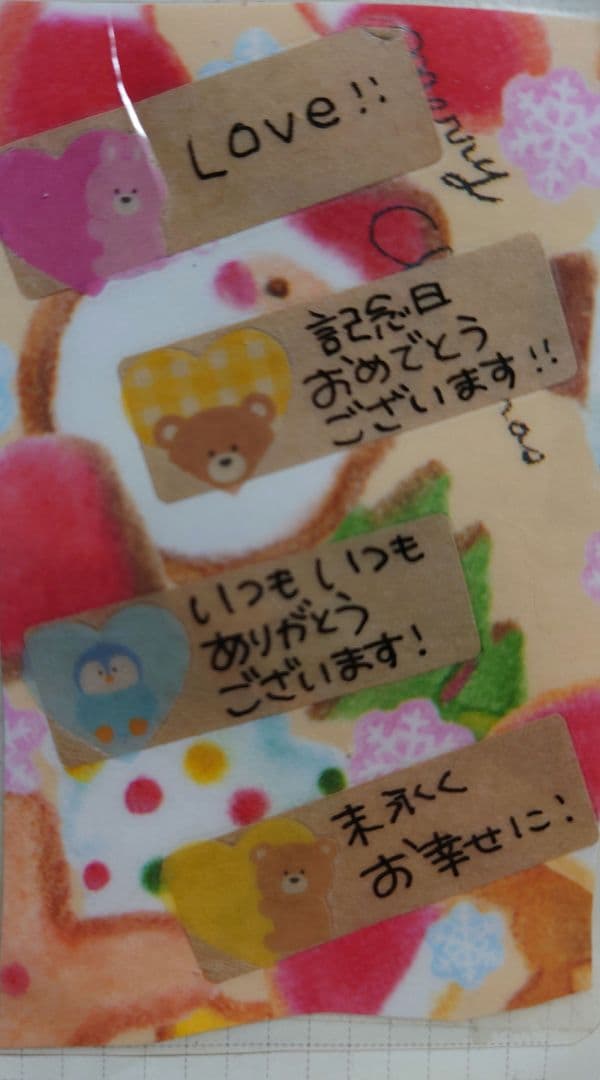 Love!!
merry
記念日
おめでとう
ございます!!
いつもいつも
ありがとう
ございます!
末永く
お幸せに!